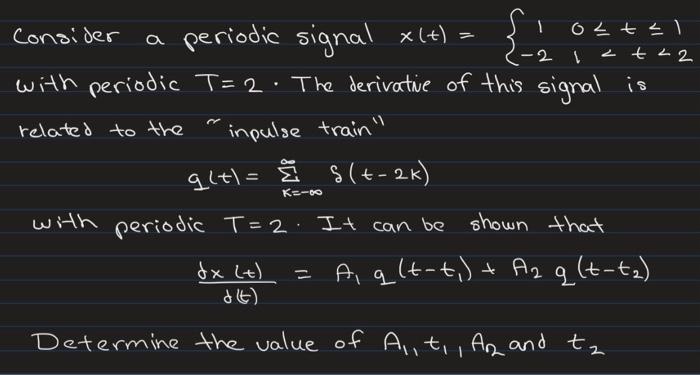 Consider a periodic signal x(t) = { 1 0 ≤ t ≤ 1
-2 1 < t < 2
with periodic T = 2 . The derivative of this signal is
related to the "inpulse train"
q(t) = ∞ Σ K=-∞ δ(t - 2K)
with periodic T = 2 . It can be shown that
dx(t)/d(t) = A₁ q(t-t₁) + A₂ q(t-t₂)
Determine the value of A₁, t₁, A₂ and t₂